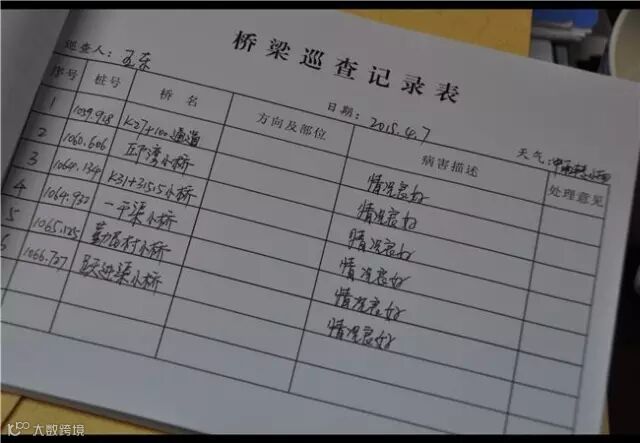 桥梁巡查记录表
巡查人: 孟东 日期: 2015.4.7 天气:
序号 桩号 桥名 方向及部位 病害描述 处理意见
1 1059.918 K27+100通道 情况良好
2 1060.606 丘湾小桥 情况良好
3 1064.134 K31+315.5小桥 情况良好
4 1064.932 一平渠小桥 情况良好
5 1065.125 村小桥 情况良好
6 1066.727 跃进渠小桥 情况良好
K100 大数跨境